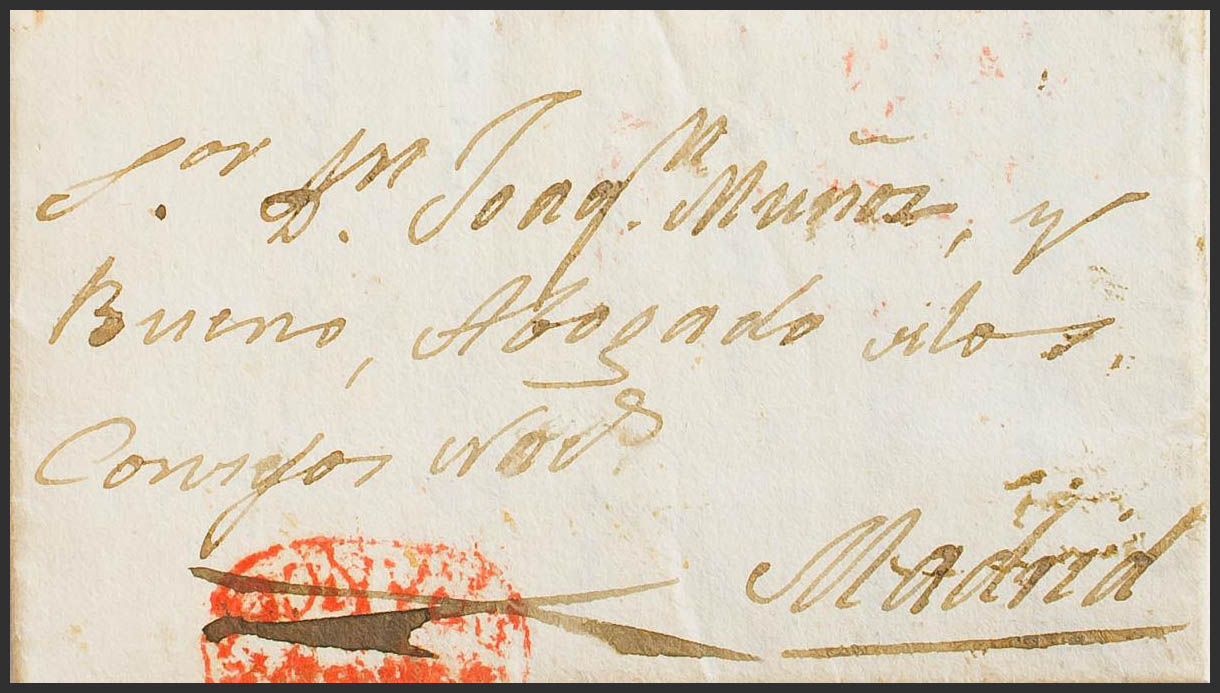 S.or D.n Joaq.n Muñoz, y
Bueno, Abogado delos
Consejos Nac.s
Madrid